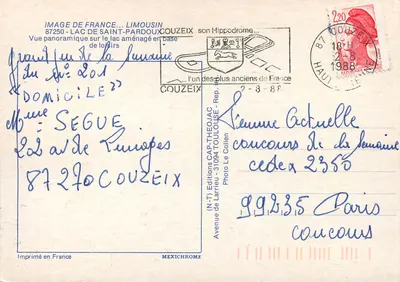 IMAGE DE FRANCE... LIMOUSIN
87250 - LAC DE SAINT-PARDOUX
Vue panoramique sur le lac aménagé en base
de loisirs
grand jeu de la semaine
du N° 201
"DOMICILE"
Mme SEGUE
202 av de Limoges
87270 COUZEIX
Imprimé en France
MEXICHROME
COUZEIX son Hippodrome...
l'un des plus anciens de France
COUZEIX
2-8-88
(N-T) Editions CAP-THEOJAC
Avenue de Larrieu - 31094 TOULOUSE - Rep. Int
Photo Le Collen
2,20
87 COUZEIX
1988
HAUTE VIENNE
Femme Actuelle
concours de la semaine
cedex 2350
99235 Paris
concours